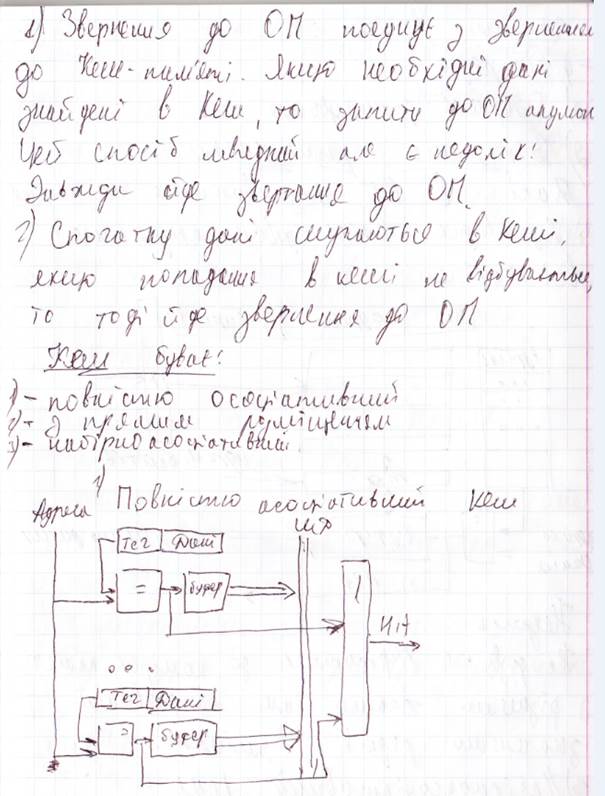 1) Звернення до ОП поєднує з звернення
до Кеш-пам'яті. Якщо необхідні дані
знайдені в Кеш, то запити до ОП
Цей спосіб швидкий але є недолік:
Завжди йде звертання до ОП.
2) Спочатку дані шукаються в кеші.
якщо попадання в кеші не відбувається,
то тоді йде звернення до ОП
Кеш буває:
1) - повністю асоціативний
2) - з прямим розміщенням
3) - набірно асоціативний
1) Повністю асоціативний Кеш
Адреса
ШД
Тег Дані
= буфер
1
Hit
Тег Дані
= буфер